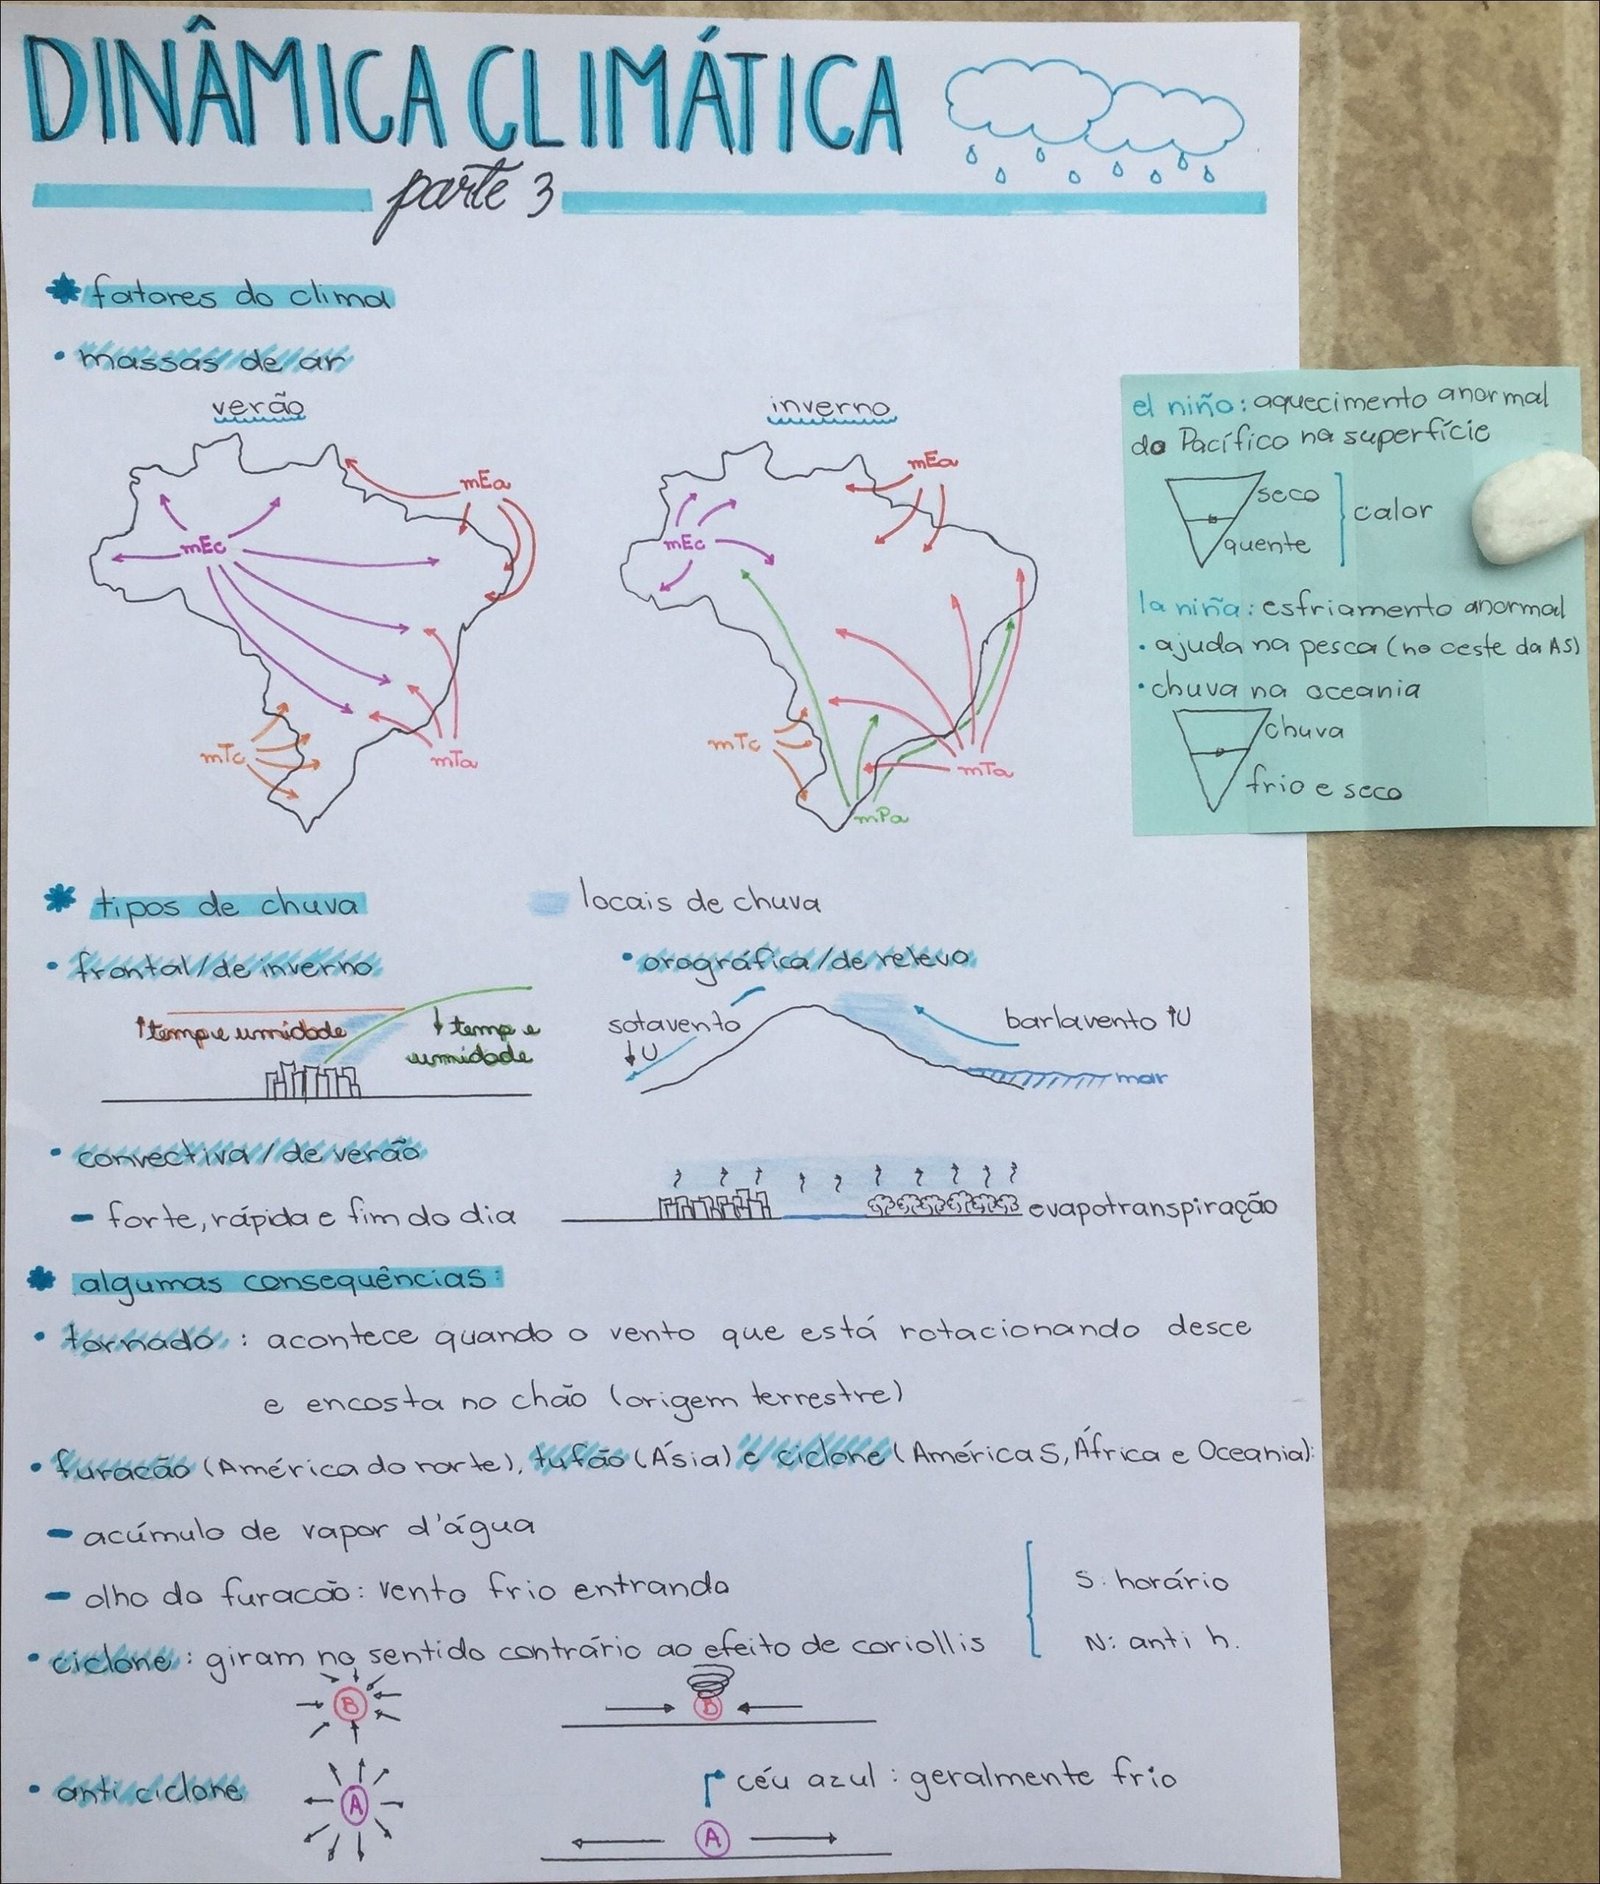 DINÂMICA CLIMÁTICA
parte 3
fatores do clima
• massas de ar
verão
inverno
mEa
mEc
mTc
mTa
mEa
mEc
mTc
mTa
mPa
el niño: aquecimento anormal
do Pacífico na superfície
seco
quente
calor
la niña: esfriamento anormal
• ajuda na pesca (no oeste da AS)
• chuva na oceania
chuva
frio e seco
tipos de chuva
locais de chuva
• frontal/de inverno
↑temp e umidade
↓ temp e
umidade
• orográfica/de relevo
sotavento
↓U
barlavento ↑U
mar
• convectiva/de verão
- forte, rápida e fim do dia
evapotranspiração
algumas consequências:
• tornado: acontece quando o vento que está rotacionando desce
e encosta no chão (origem terrestre)
• furacão (América do norte), tufão (Ásia) e ciclone (América S, África e Oceania):
- acúmulo de vapor d'água
- olho do furacão: vento frio entrando
• ciclone: giram no sentido contrário ao efeito de coriollis
S: horário
N: anti h.
B
B
• anti ciclone
A
céu azul: geralmente frio
A